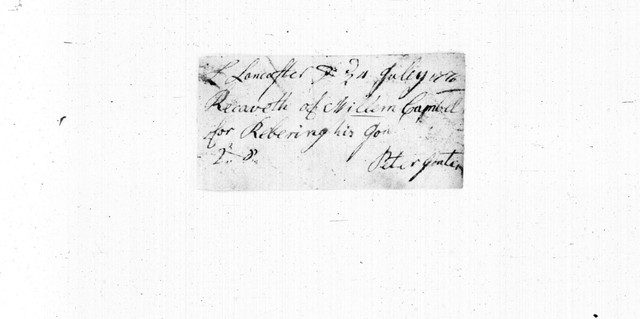 Lancaster 24 July
Receaveth of Willem Cambel
for Rebering his gon
2 8
Peter gonter